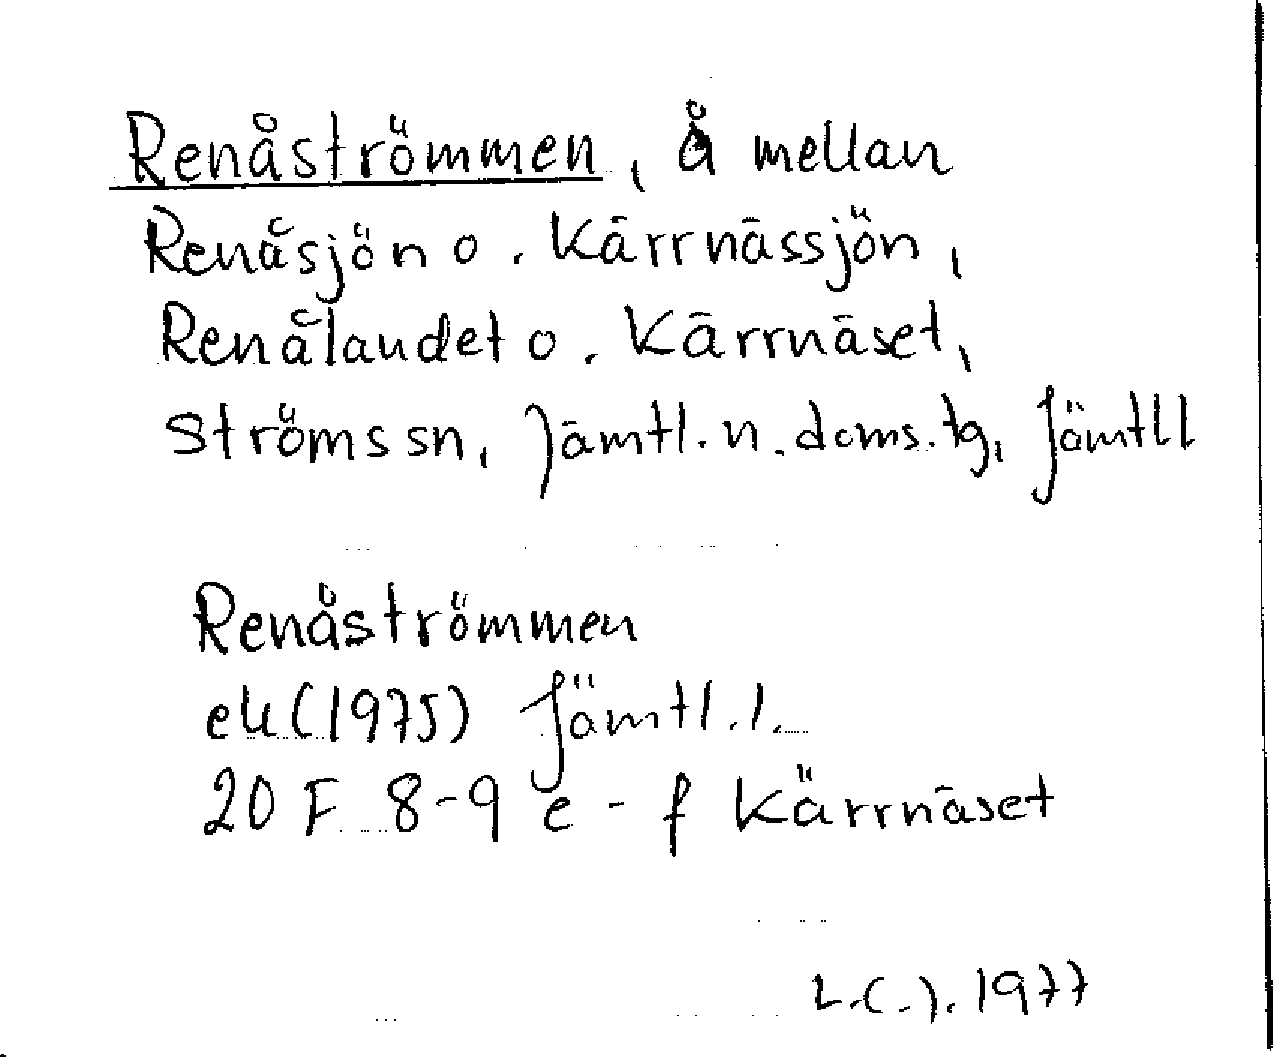 Renåströmmen, å mellan
Renåsjön o. Kärrnässjön,
Renålandet o. Kärrnäset,
Ströms sn, Jämtl. n. doms. tg, Jämtl l
Renåströmmen
ek (1975) Jämtl. l.
20 F 8-9 e - f Kärrnäset
L.C.J. 1977